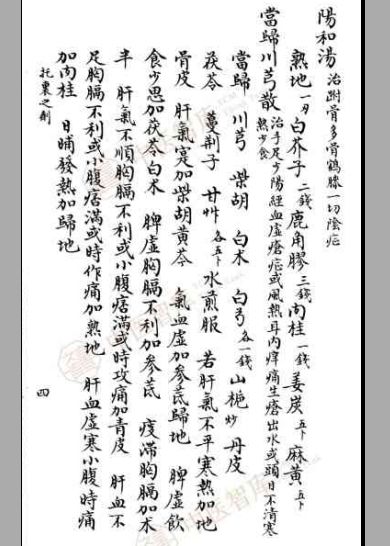 陽和湯 治附骨多骨鶴膝一切陰疽
熟地一刄 白芥子二錢 鹿角膠三錢 肉桂一錢 姜炭五卜 麻黃五卜
當歸川芎散 治手足少陽經血虛瘡症或風熱耳內痒痛生瘡出水或頭目不清寒熱少食
當歸 川芎 柴胡 白朮 白芍各一錢 山梔炒 丹皮
茯苓 蔓荆子 甘艸各五卜 水煎服 若肝氣不平寒熱加地
骨皮 肝氣寔加柴胡黃芩 氣血虛加參芪歸地 脾虛飲
食少思加茯苓白朮 脾虛胸膈不利加參芪 痰滯胸膈加朮
半 肝氣不順胸膈不利或小腹痞滿或時攻痛加青皮 肝血不
足胸膈不利或小腹痞滿或時作痛加熟地 肝血虛寒小腹時痛
加肉桂 日晡發熱加歸地
托裏之劑
四